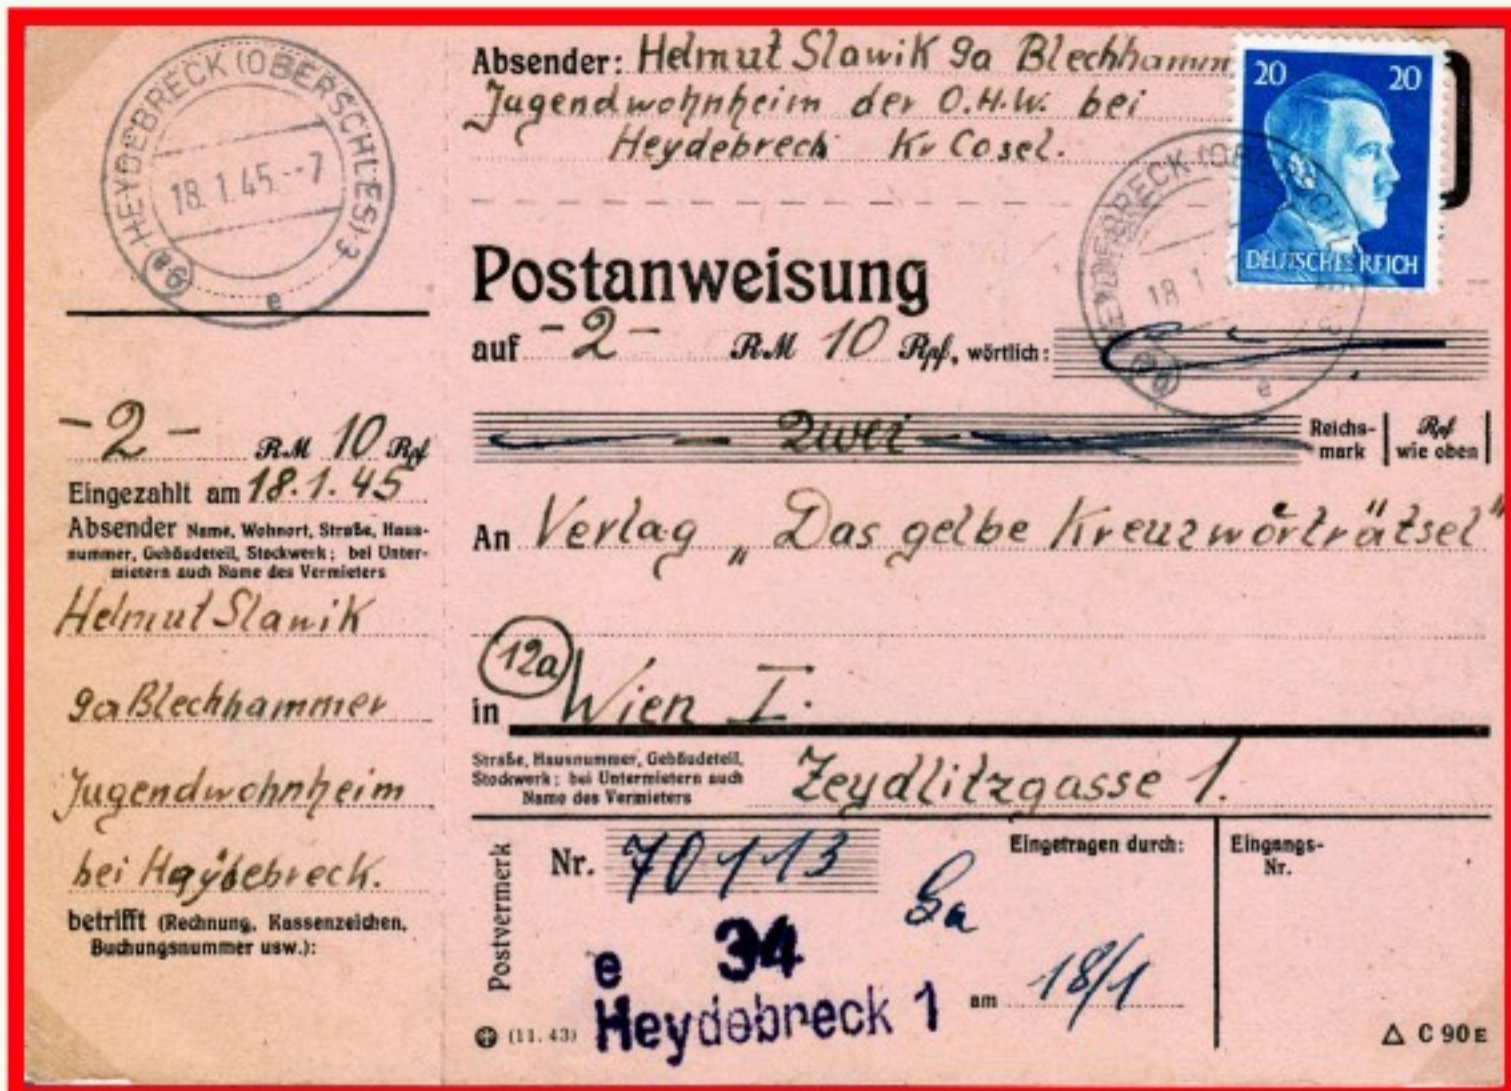 (9a) HEYDEBRECK (OBERSCHLES) 3
18.1.45.--7
e
-2- RM 10 Rpf
Eingezahlt am 18.1.45
Absender Name, Wohnort, Straße, Haus-
nummer, Gebäudeteil, Stockwerk; bei Unter-
mietern auch Name des Vermieters
Helmut Slawik
9a Blechhammer
Jugendwohnheim
bei Heydebreck.
betrifft (Rechnung, Kassenzeichen,
Buchungsnummer usw.):
Absender: Helmut Slawik 9a Blechhamm
Jugendwohnheim der O.H.W. bei
Heydebreck Kr Cosel.
20 20
DEUTSCHES REICH
HEYDEBRECK (OB
18 1
(9a) e 3
Postanweisung
auf -2- RM 10 Rpf, wörtlich:
Zwei Reichs-
mark
Rpf
wie oben
An Verlag „Das gelbe Kreuzwörträtsel"
(12a)
in Wien I.
Straße, Hausnummer, Gebäudeteil,
Stockwerk; bei Untermietern auch
Name des Vermieters
Zeydlitzgasse 1.
Postvermerk
Nr. 70113
Eingetragen durch:
Eingangs-
Nr.
e 34
Heydebreck 1
am 18/1
(11. 43)
△ C 90 E